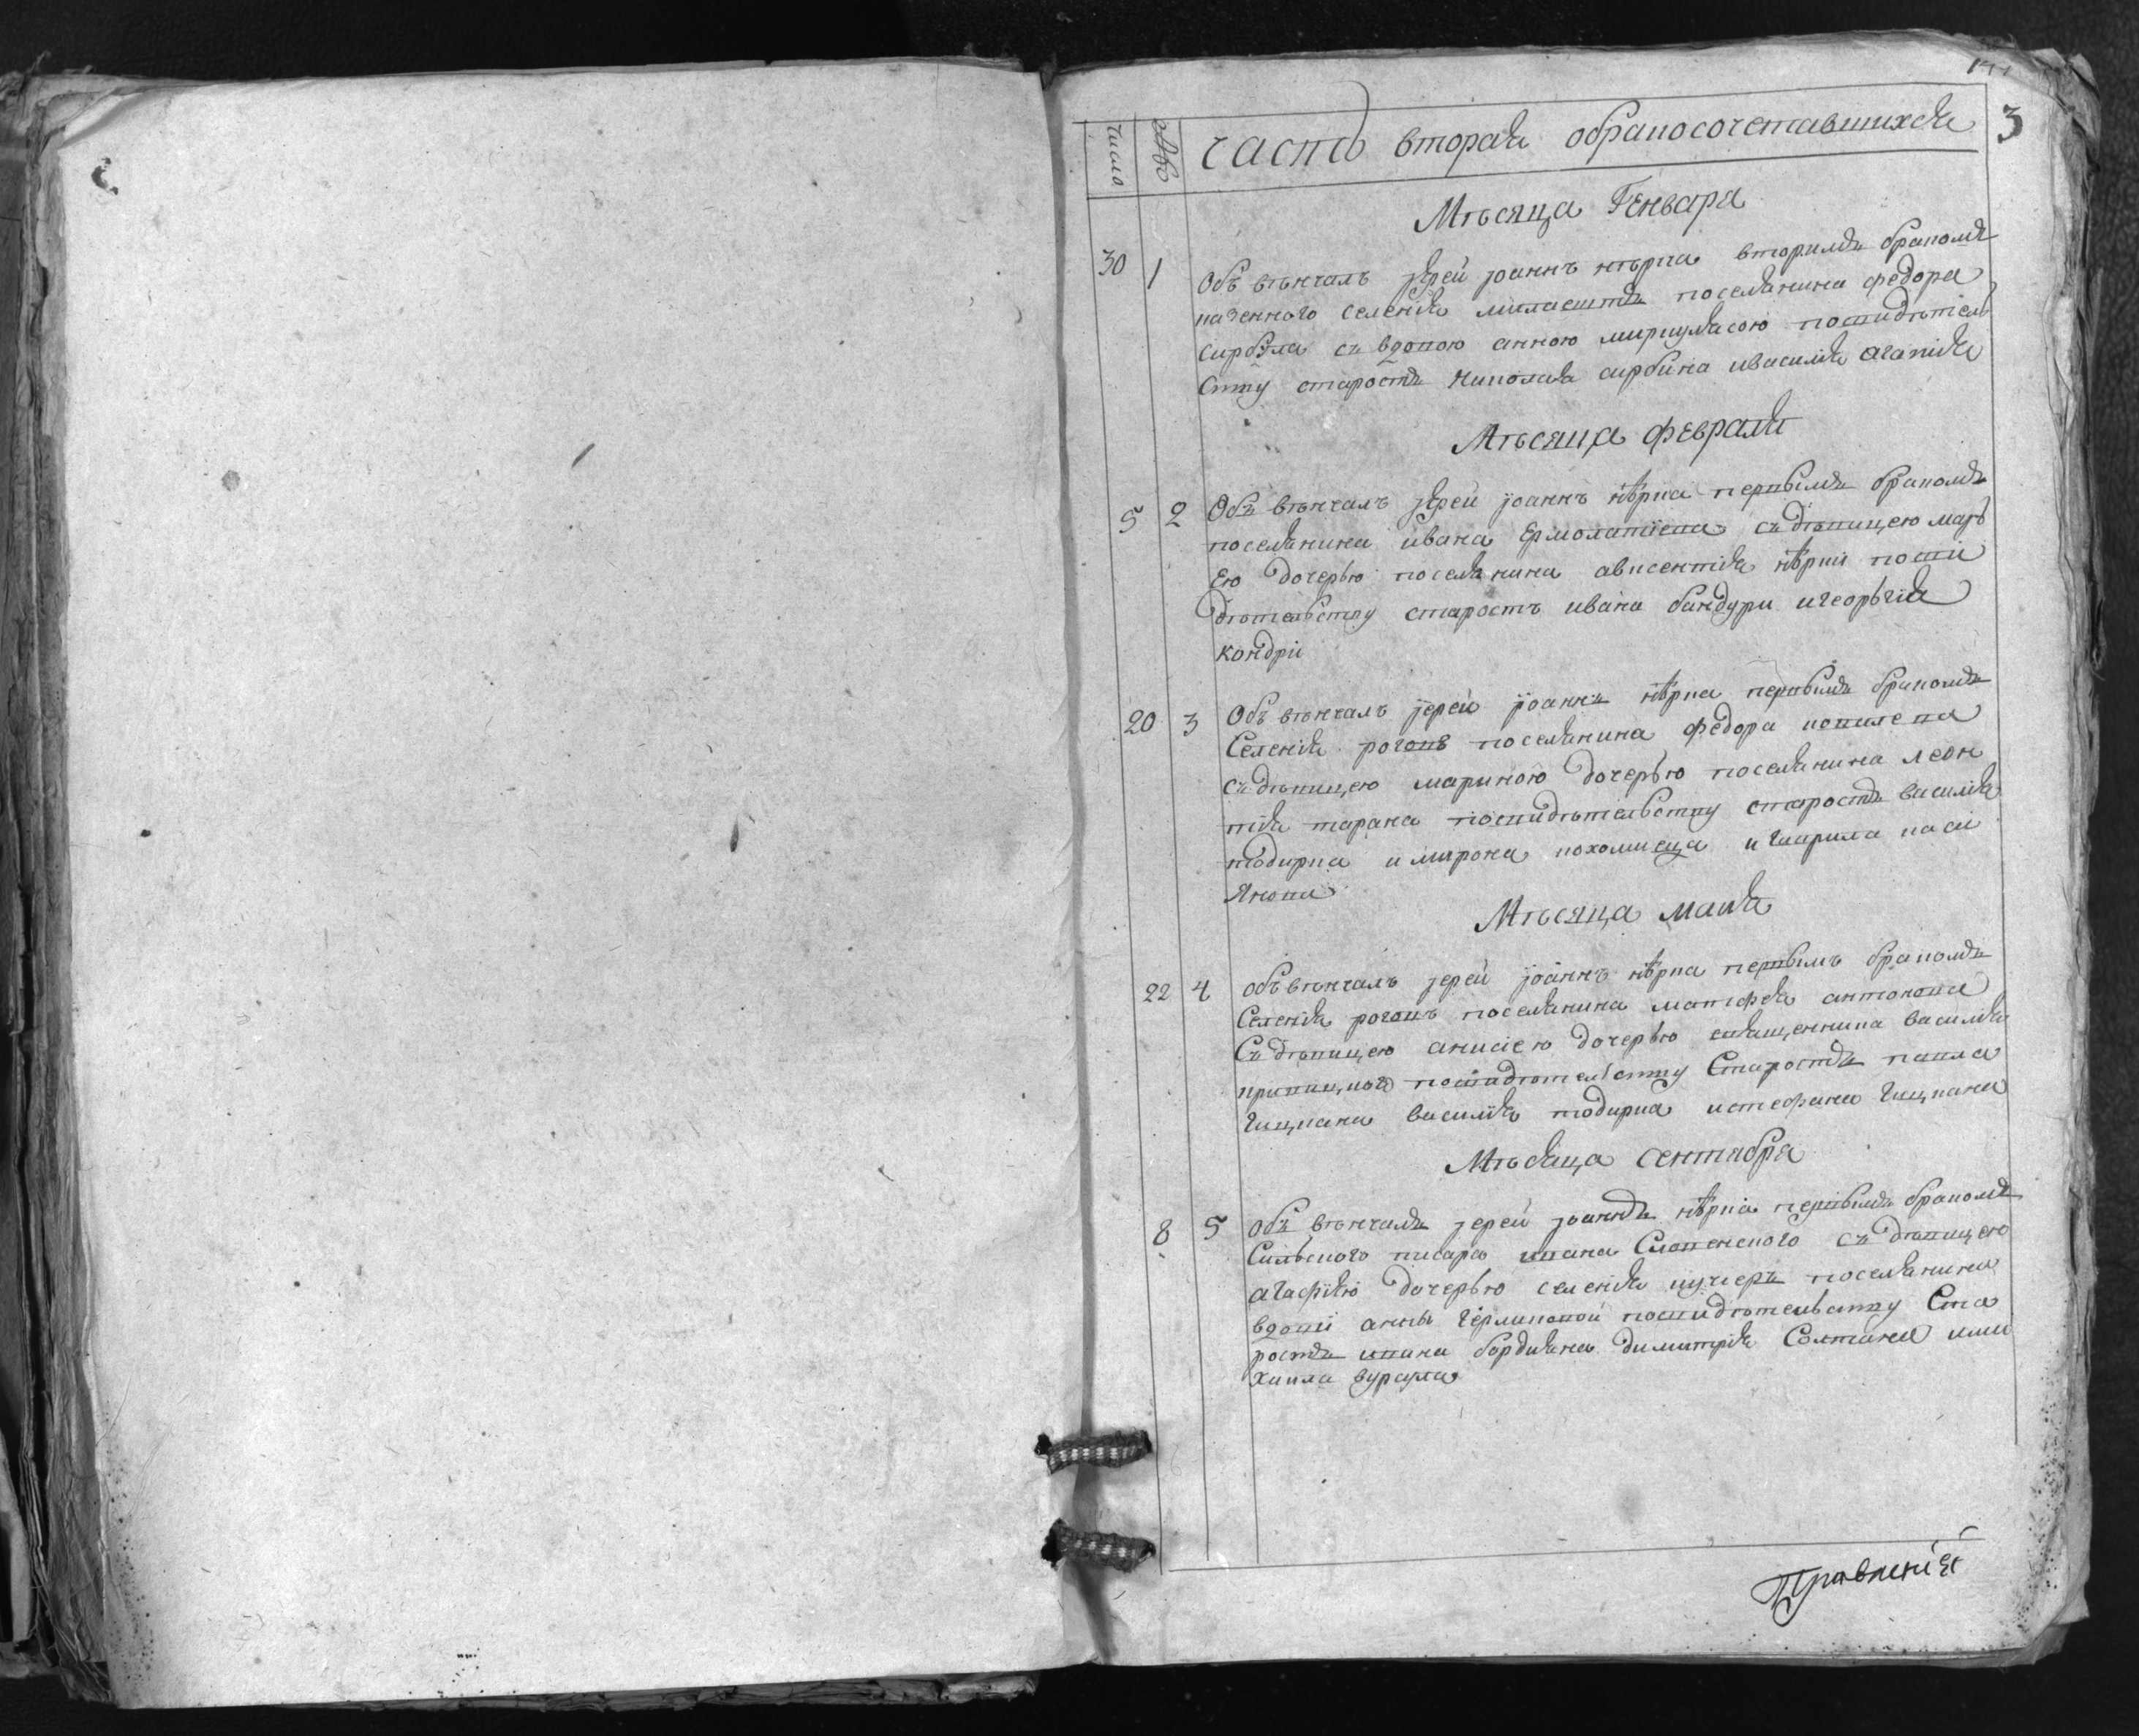 3
число
часть вторая обракосочетавшихся
Мѣсяца Генвара
30 1 Объ вѣнчалъ іерей іоаннъ нѣрка вторимъ бракомъ
казенного селенія милаештъ поселянина федора
сирбула съ вдовою анною посвидѣтел
ству старостъ николая сирбина ивасилія агапія
Мѣсяца февраля
5 2 Объ вѣнчалъ іерей іоаннъ нѣрка первымъ бракомъ
поселянина ивана Ермолатіева съ дѣвицею марі
Ею дочерью поселянина авксентія нѣрки посви
дѣтельству старостъ ивана бандури игеоргія
кондрі
20 3 Объ вѣнчалъ іерей іоаннъ нѣрка первымъ бракомъ
Селенія рогонъ поселянина федора
съ дѣвицею мариною дочерью поселянина леон
тія тарана посвидѣтельству старостъ василія
тодирка и мирона и гаврила васи
Мѣсяца маія
22 4 объвѣнчалъ іерей іоаннъ нѣрка первымъ бракомъ
Селенія рогонъ поселянина матфея антонова
Съ дѣвицею анисіею дочерью священника василія
посвидѣтельству Старостъ павла
гицкана василія тодирка истефана гицкана
Мѣсяца сентабра
8 5 Объ вѣнчалъ іерей іоаннъ нѣрка первымъ бракомъ
Сильского писара ивана Словенского съ дѣвицею
агафіею дочерью селенія поселянини
вдови анны посвидѣтельству Ста
ростъ ивана бордіяна димитрія Солтана ими
хаила вураула
Правленія